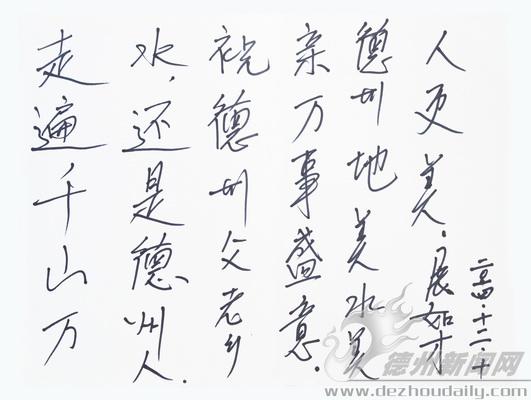 走遍千山万
水,还是德州人.
祝德州父老乡
亲万事盛意.
德州地美水美
人更美.
十二·十
德州新闻网
www.dezhoudaily.com